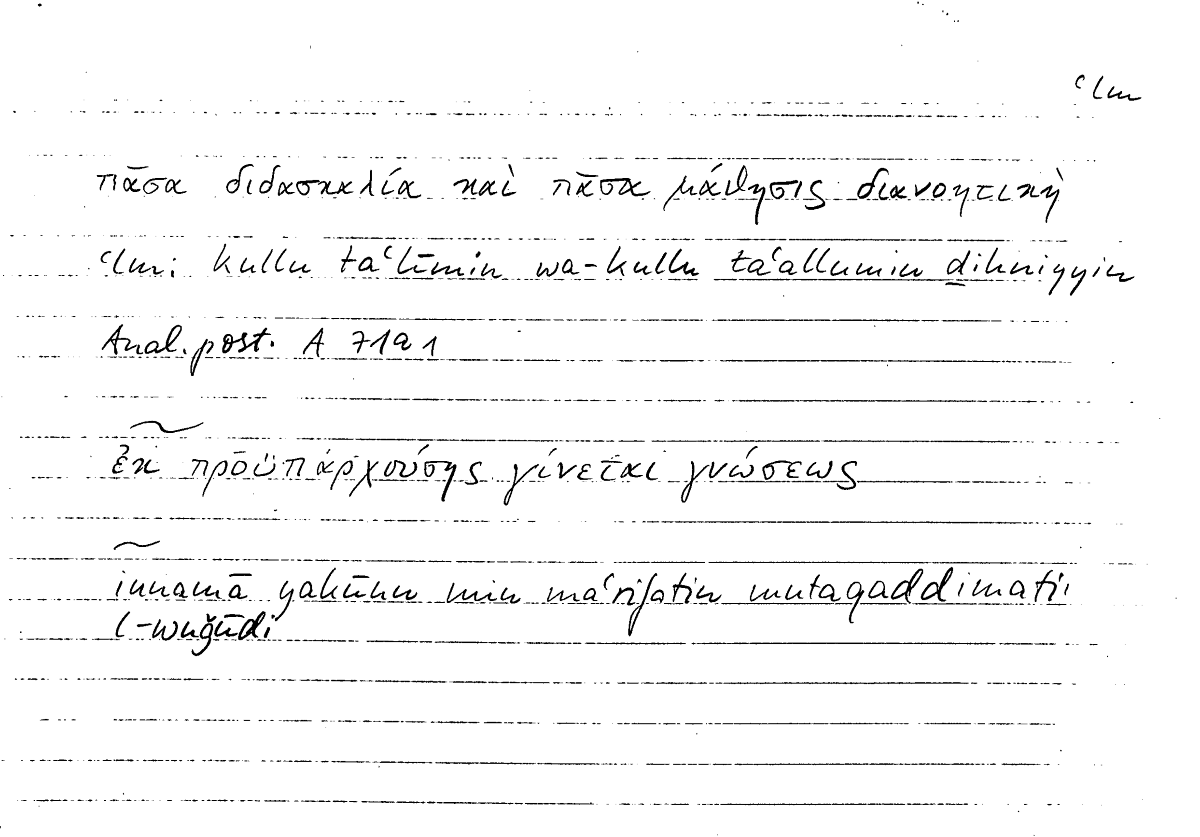 ʿlm
πᾶσα διδασκαλία καὶ πᾶσα μάθησις διανοητικὴ
ʿlm: kullu taʿlīmin wa-kullu taʿallumin ḏihniyyin
Anal. post. A 71a1
ἐκ προϋπαρχούσης γίνεται γνώσεως
innamā yakūnu min maʿrifatin mutaqaddimati
l-wuǧūdi